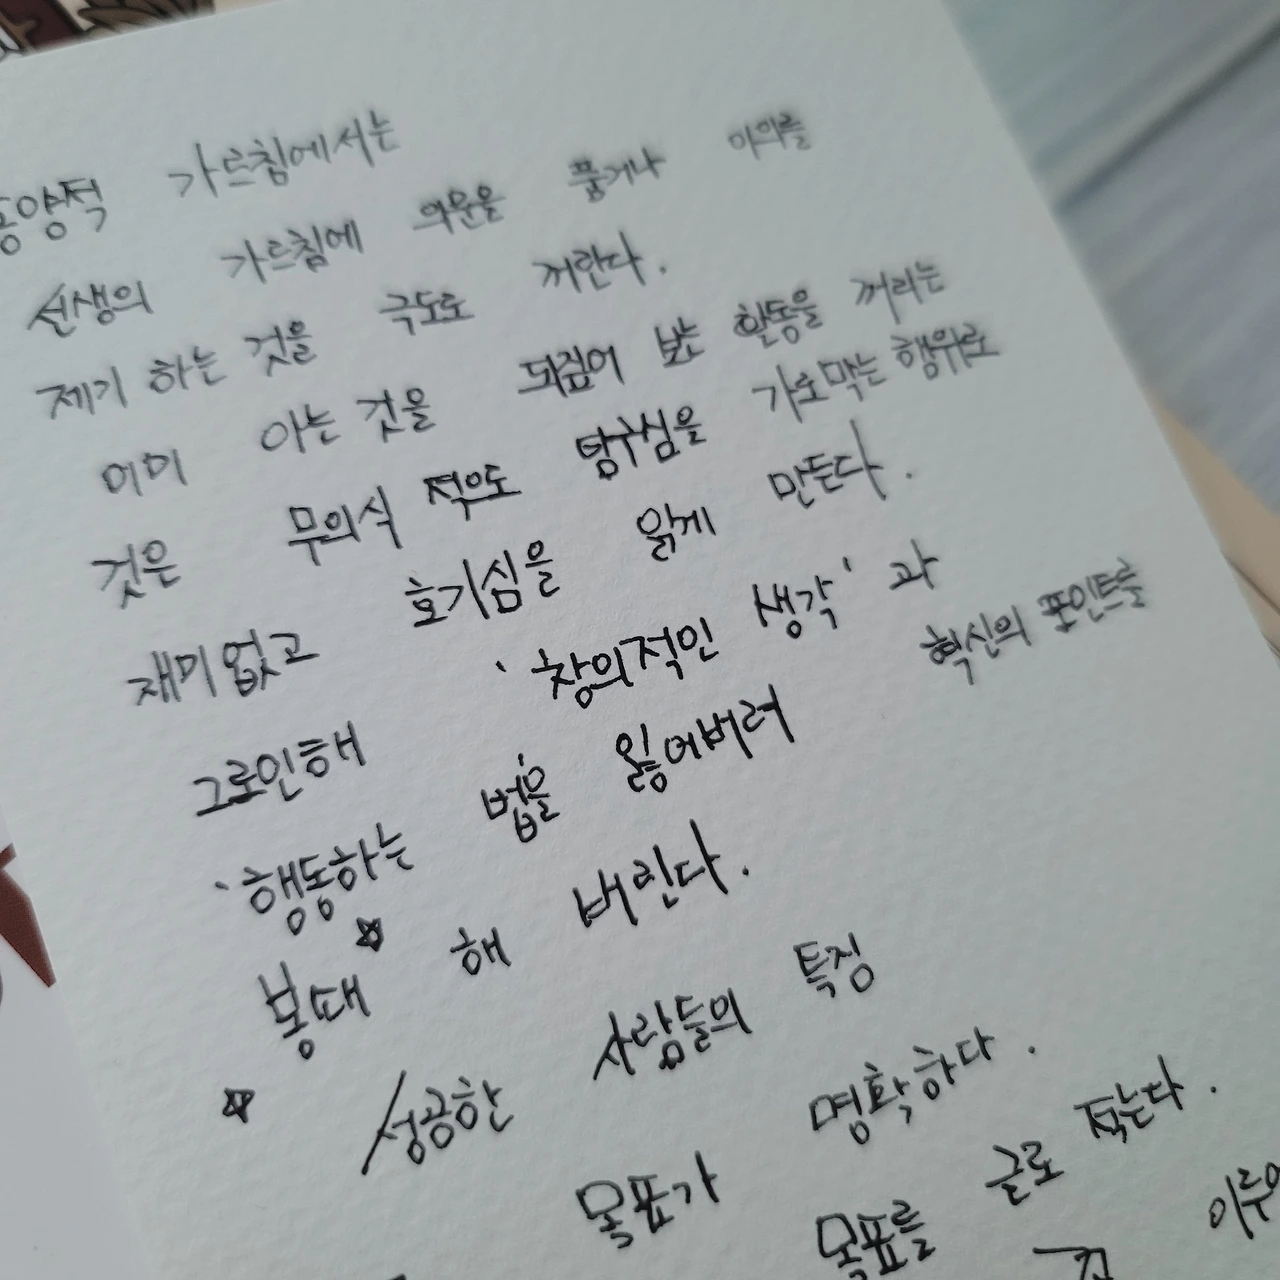 동양적 가르침에서는
선생의 가르침에 의문을 품거나 이의를
제기 하는 것을 극도로 꺼란다.
이미 아는 것을 되짚어 보는 활동을 꺼리는
것은 무의식 적으로 탐구심을 가로막는 행위로
재미없고 호기심을 잃게 만든다.
그로인해 '창의적인 생각'과 혁신의 포인트를
'행동하는 법'을 잃어버려
봉때 해 버린다.
성공한 사람들의 특징
목표가 명확하다.
목표를 글로 적는다.